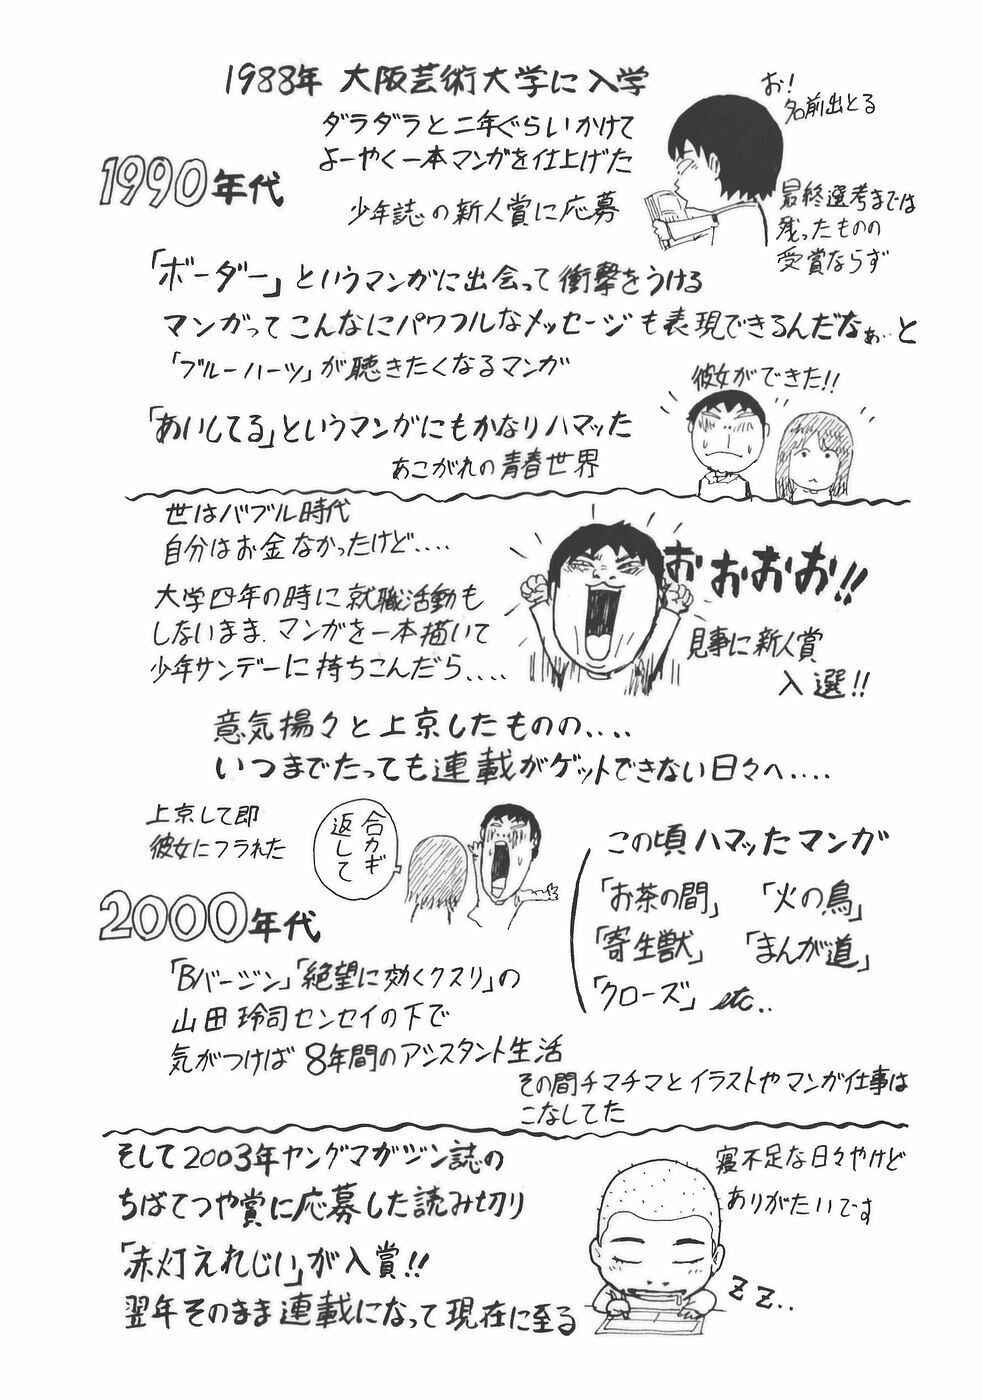 1988年 大阪芸術大学に入学
ダラダラと二年ぐらいかけて
よーやく一本マンガを仕上げた
お！
名前出とる
1990年代
少年誌の新人賞に応募
最終選考までは
残ったものの
受賞ならず
「ボーダー」というマンガに出会って衝撃をうける
マンガってこんなにパワフルなメッセージも表現できるんだなぁ…と
「ブルーハーツ」が聴きたくなるマンガ
彼女ができた!!
「あいしてる」というマンガにもかなりハマッた
あこがれの青春世界
世はバブル時代
自分はお金なかったけど....
大学四年の時に就職活動も
しないまま.マンガを一本描いて
少年サンデーに持ちこんだら.....
おおおおお!!
見事に新人賞
入選!!
意気揚々と上京したものの....
いつまでたっても連載がゲットできない日々へ....
上京して即
彼女にフラれた
合カギ
返して
この頃ハマッたマンガ
「お茶の間」 「火の鳥」
「寄生獣」 「まんが道」
「クローズ」etc..
2000年代
「Bバージン」「絶望に効くクスリ」の
山田玲司センセイの下で
気がつけば8年間のアシスタント生活
その間チマチマとイラストやマンガ仕事は
こなしてた
そして2003年ヤングマガジン誌の
ちばてつや賞に応募した読み切り
「赤灯えれじい」が入賞!!
翌年そのまま連載になって現在に至る
寝不足な日々やけど
ありがたいです
ZZ..